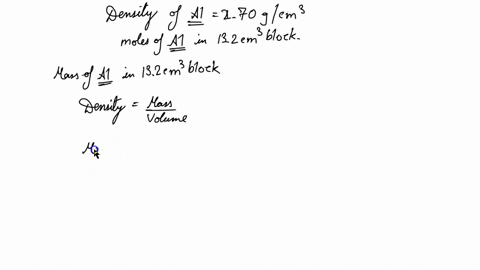 Density of Al = 2.70 g/cm³
moles of Al in 13.2 cm³ block.
Mass of Al in 13.2 cm³ block
Density = Mass / Volume
M